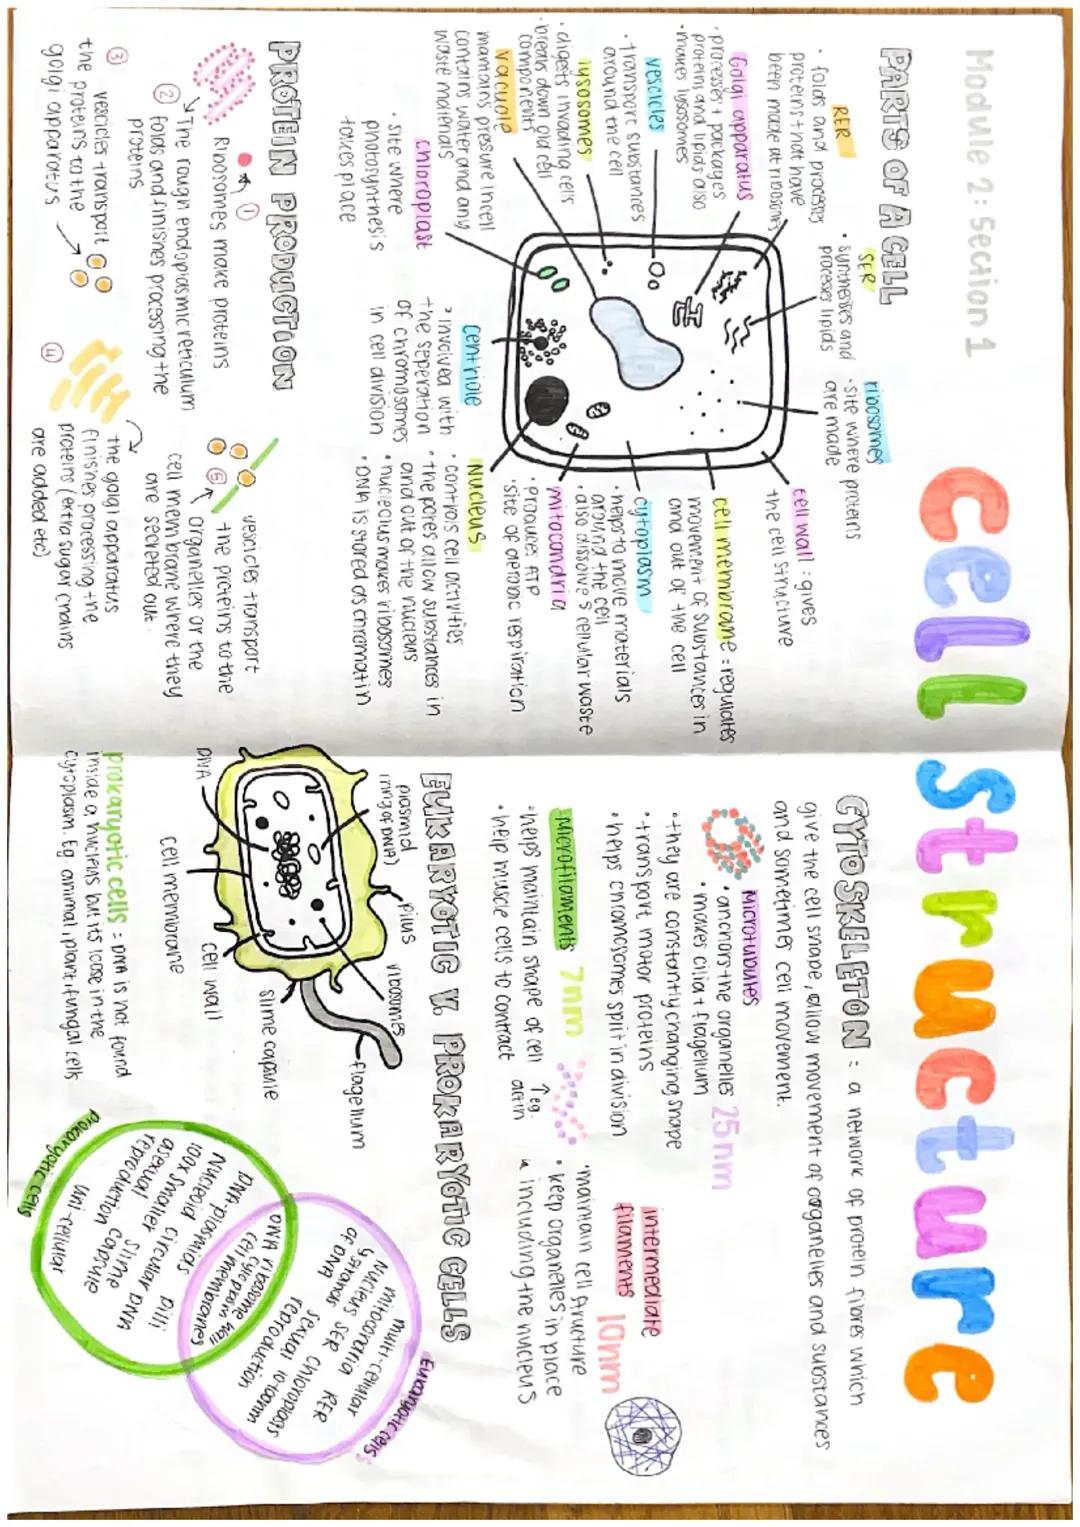 Module 2: Section 1
Cell Structure
PARTS OF A CELL
RER
· folds and processes
proteins that have
been made at ribosomes
SER
· synthesises and
processes lipids
ribosomes
· site where proteins
are made
cell wall : gives
the cell structure
cell membrane : regulates
movement of substances in
and out of the cell
cytoplasm
· helps to move materials
around the cell
· also dissolves cellular waste
mitocondria
· produces ATP
· site of aerobic respiration
Nucleus
· controls cell activities
· the pores allow substances in
and out of the nucleus
· nucleolus makes ribosomes
· DNA is stored as chromatin
Golgi apparatus
· processes + packages
proteins and lipids also
· makes lysosomes
vescicles
· transport substances
around the cell
lysosomes
· digests invading cells
· breaks down old cell
components
vacuole
maintains pressure in cell
contains water and any
waste materials
chloroplast
· site where
photosynthesis
takes place
centriole
· involved with
the seperation
of chromosomes
in cell division
PROTEIN PRODUCTION
①
Ribosomes make proteins
② The rough endoplasmic reticulum
folds and finishes processing the
proteins
③ vescicles transport
the proteins to the
golgi apparatus
④ the golgi apparatus
finishes processing the
proteins (extra sugar chains
are added etc)
⑤ vesicles transport
the proteins to the
organelles or the
cell membrane where they
are secreted out.
CYTOSKELETON : a network of protein fibres which
give the cell shape, allow movement of organelles and substances
and sometimes cell movement.
Microtubules 25nm
· anchors the organelles
· makes cilia + flagellum
· they are constantly changing shape
· transport motor proteins
· helps chromosomes split in division
intermediate
filaments 10nm
· maintain cell structure
· keep organelles in place
including the nucleus
Microfilaments 7nm
· helps maintain shape of cell
· help muscle cells to contact
↑ eg.
actin
EUKARYOTIC V. PROKARYOTIC CELLS
plasmid
(ring of DNA)
pilus
ribosomes
flagellum
slime capsule
cell wall
cell membrane
DNA
prokaryotic cells : DNA is not found
inside a nucleus but its loose in the
cytoplasm. Eg animal, plant, fungal cells
Prokaryotic cells
DNA + plasmids
Nucleoid
pilli
100x smaller
circular DNA
asexual
reproduction
slime
capsule
uni-cellular
DNA
ribosome
cell wall
cytoplasm
cell membranes
Eukaryotic cells
multi-cellular
mitocondria
RER
Nucleus
SER
chloroplasts
of DNA
sexual
reproduction